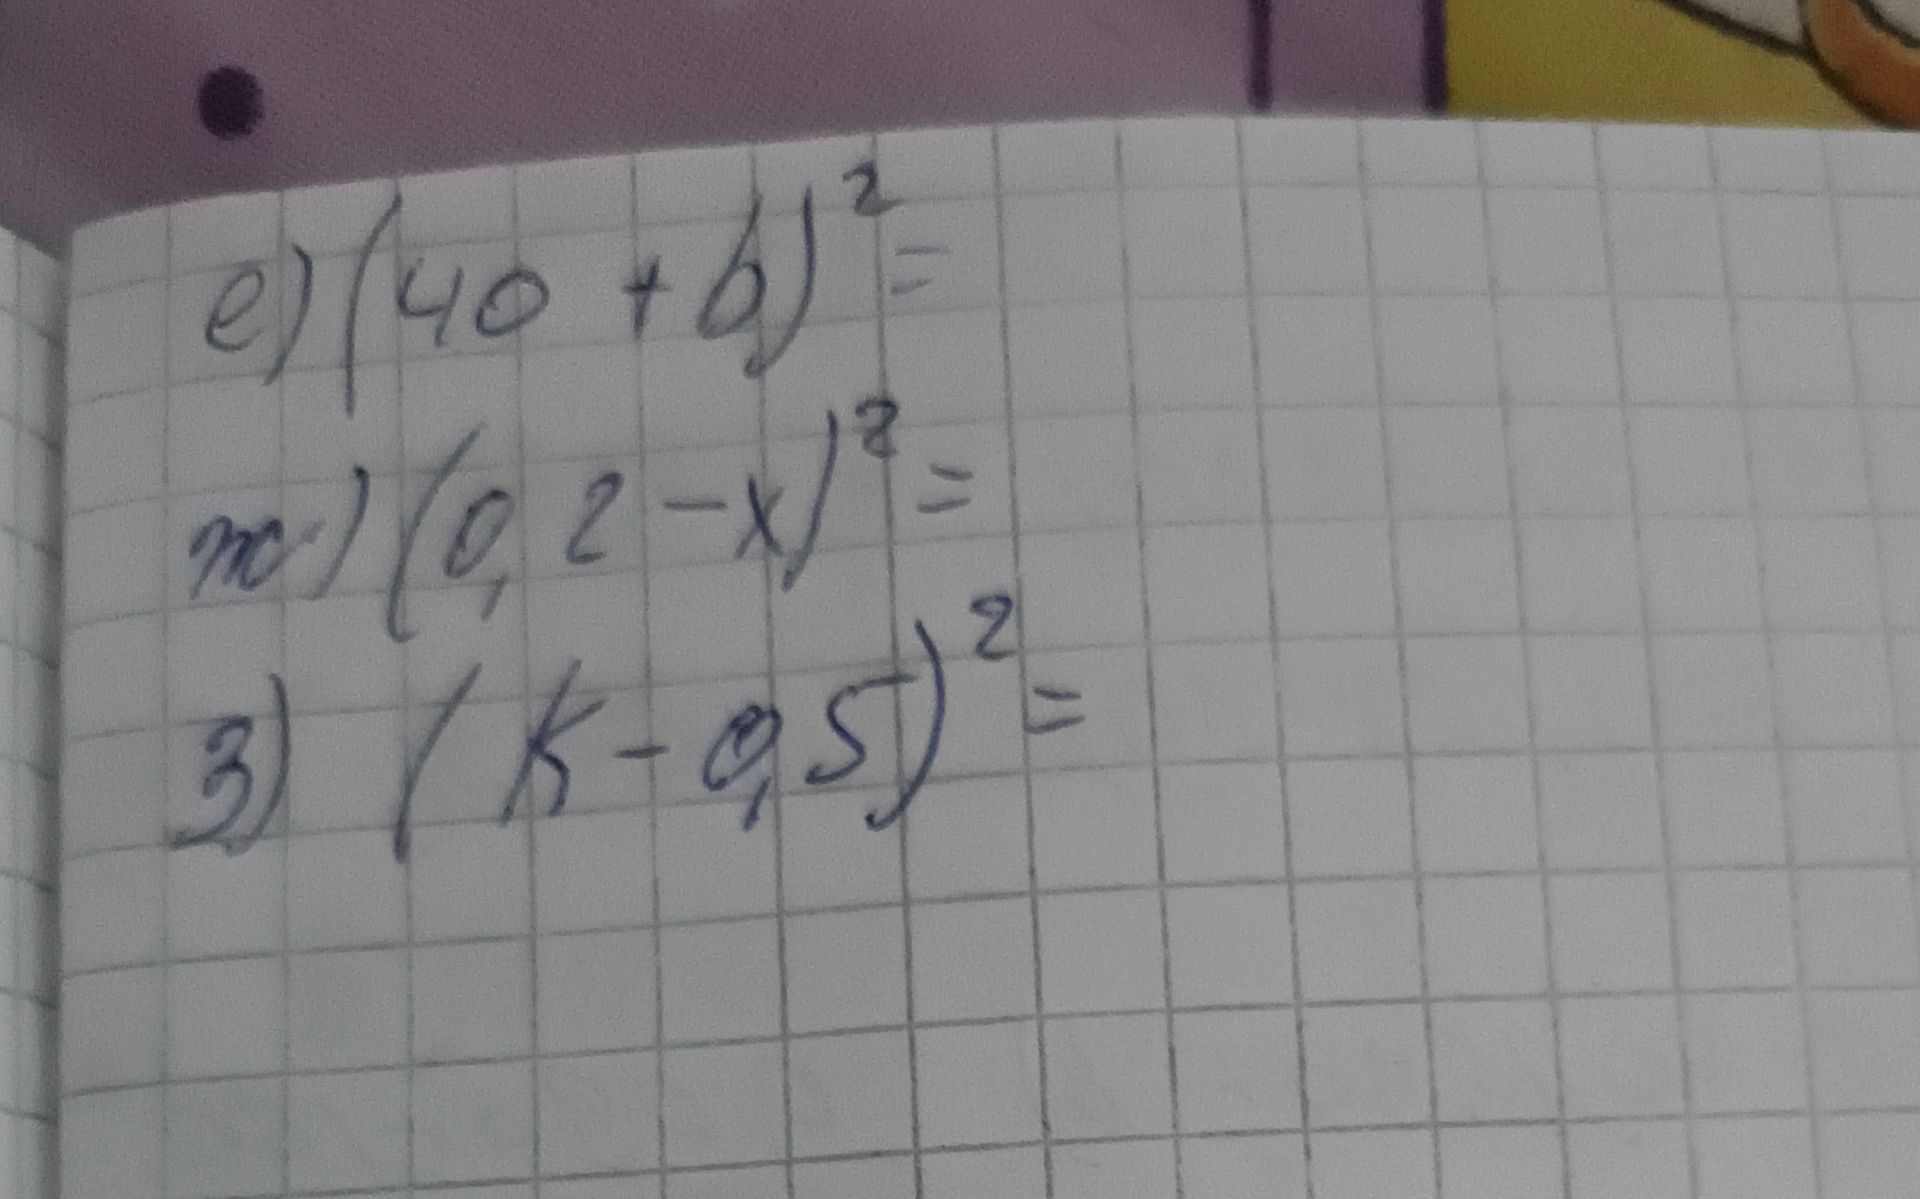 е) (40 + b)² =
ж) (0,2 - x)² =
з) (k - 0,5)² =